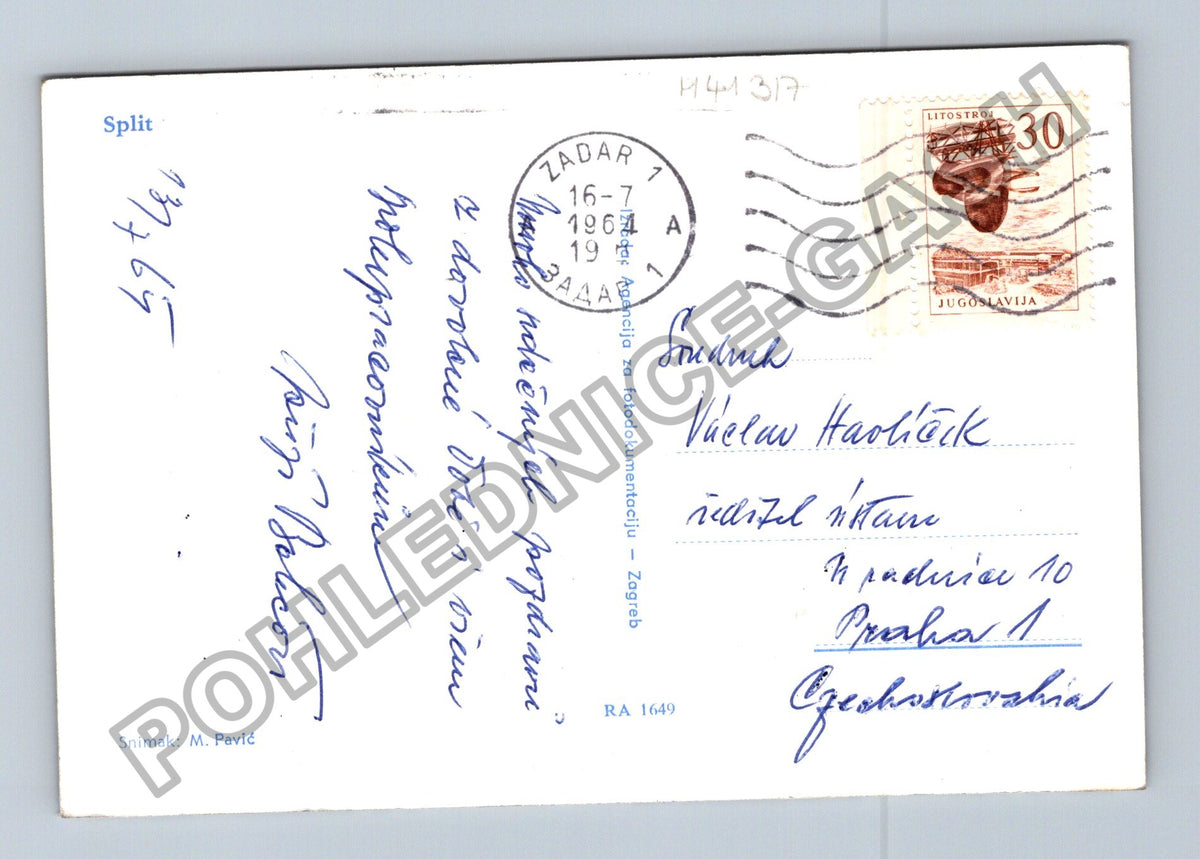 Split
H41317
ZADAR 1
16-7
1964
19
A
ЗАДАР 1
LITOSTROJ
30
JUGOSLAVIJA
srdečných pozdravů
z dovolené Vám i všem
spolupracovníkům
Jiří
Izradak Agencija za fotodokumentaciju – Zagreb
Soudruh
Václav Havlíček
ředitel ústavu
U radnice 10
Praha 1
Czechoslovakia
RA 1649
Snimak: M. Pavić
POHLEDNICE-GASH